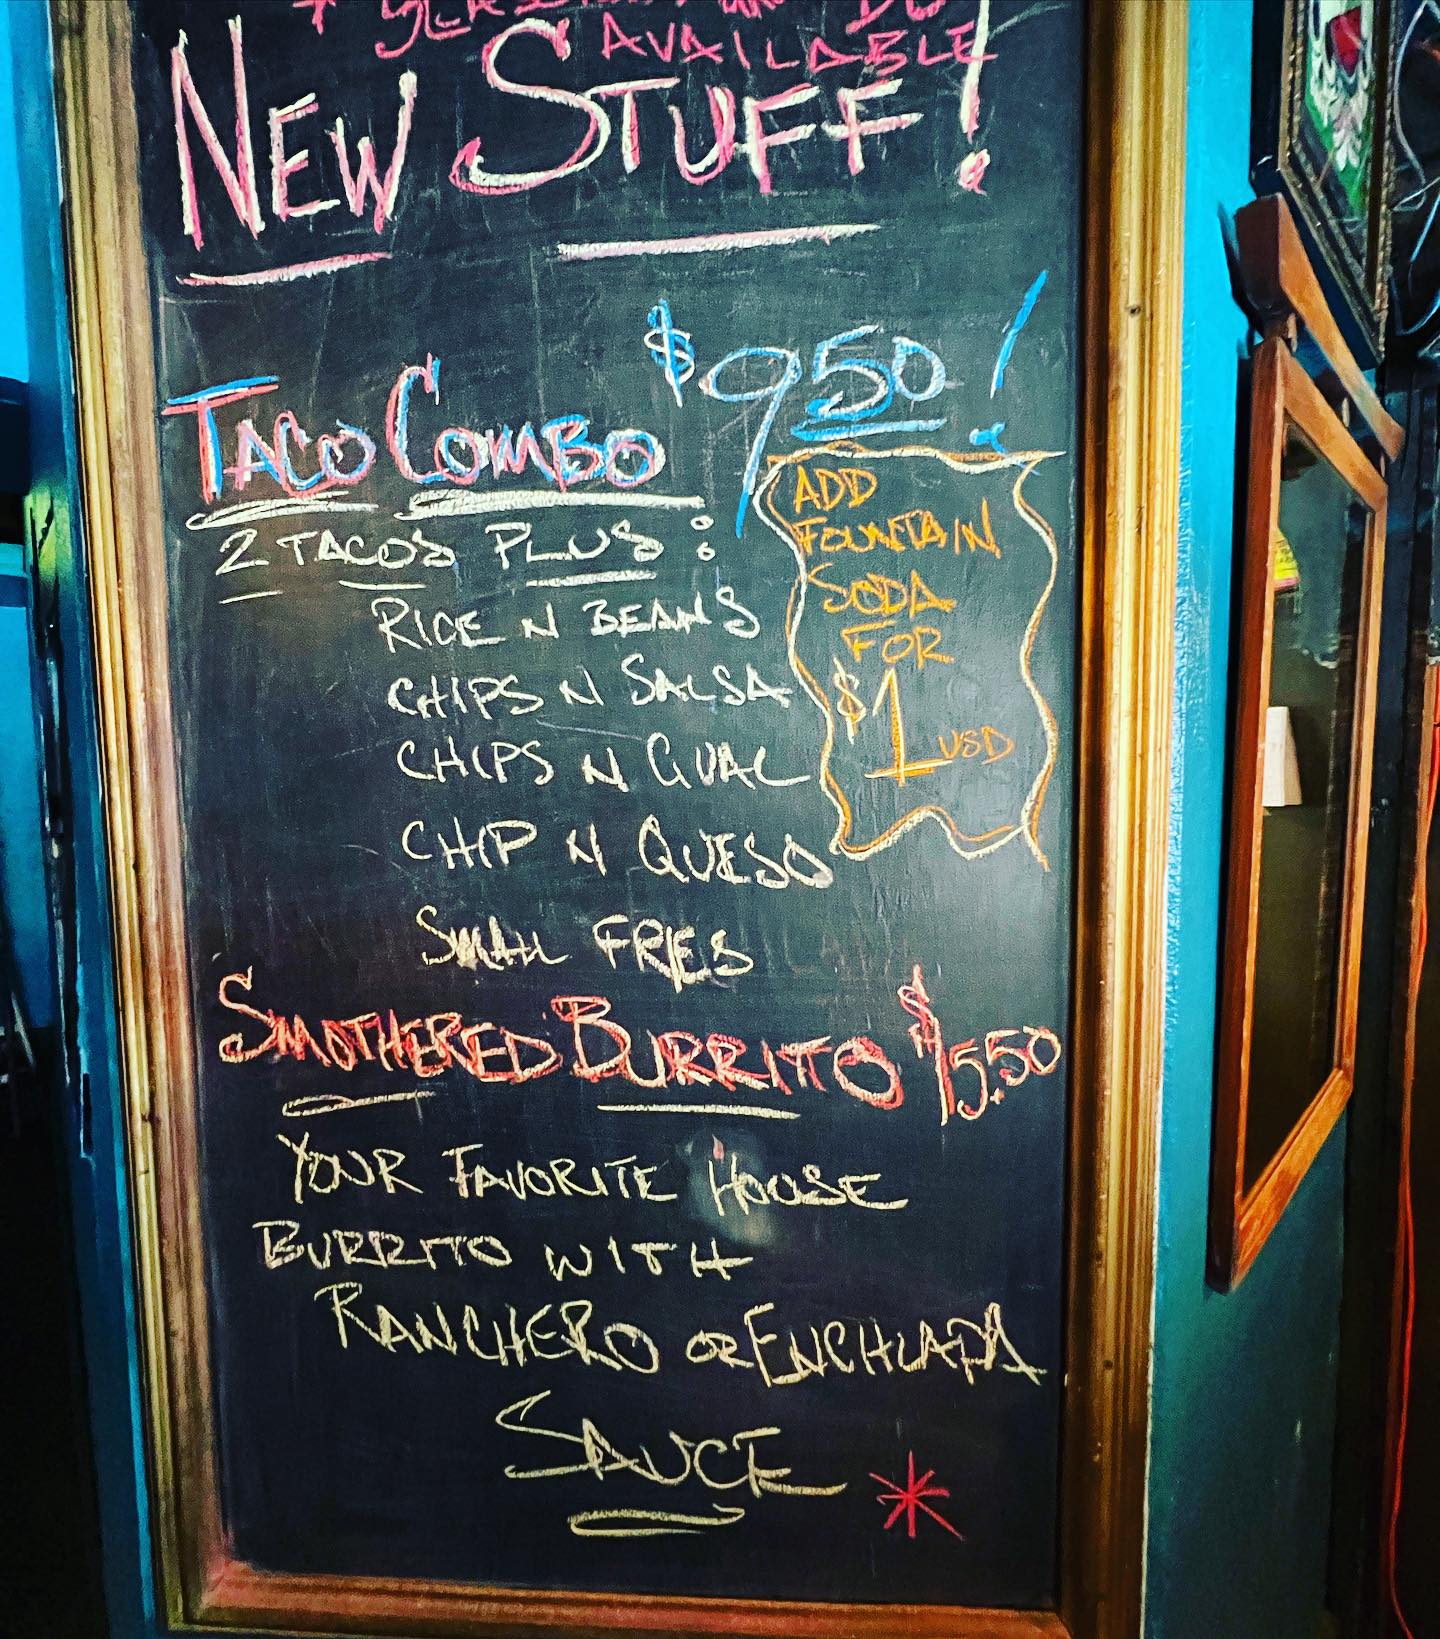 AVAILABLE
NEW STUFF!
$950!
TACO COMBO
2 TACOS PLUS:
RICE N BEANS
CHIPS N SALSA
CHIPS N GUAC
CHIP N QUESO
SMALL FRIES
ADD
FOUNTAIN
SODA
FOR
$1 USD
SMOTHERED BURRITO $15.50
YOUR FAVORITE HOUSE
BURRITO WITH
RANCHERO OR ENCHILADA
SAUCE